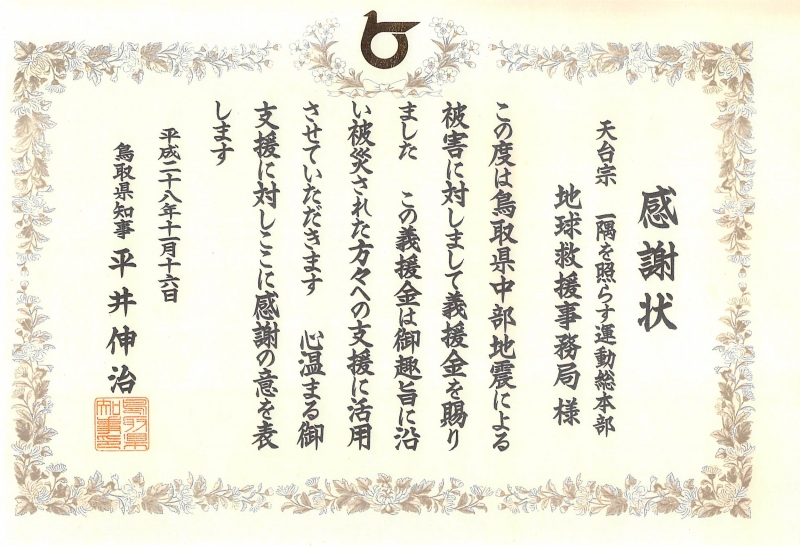 感謝状
天台宗 一隅を照らす運動総本部
地球救援事務局 様
この度は鳥取県中部地震による
被害に対しまして義援金を賜り
ました この義援金は御趣旨に沿
い被災された方々への支援に活用
させていただきます 心温まる御
支援に対しここに感謝の意を表
します
平成二十八年十一月十六日
鳥取県知事 平井伸治
鳥取県知事印